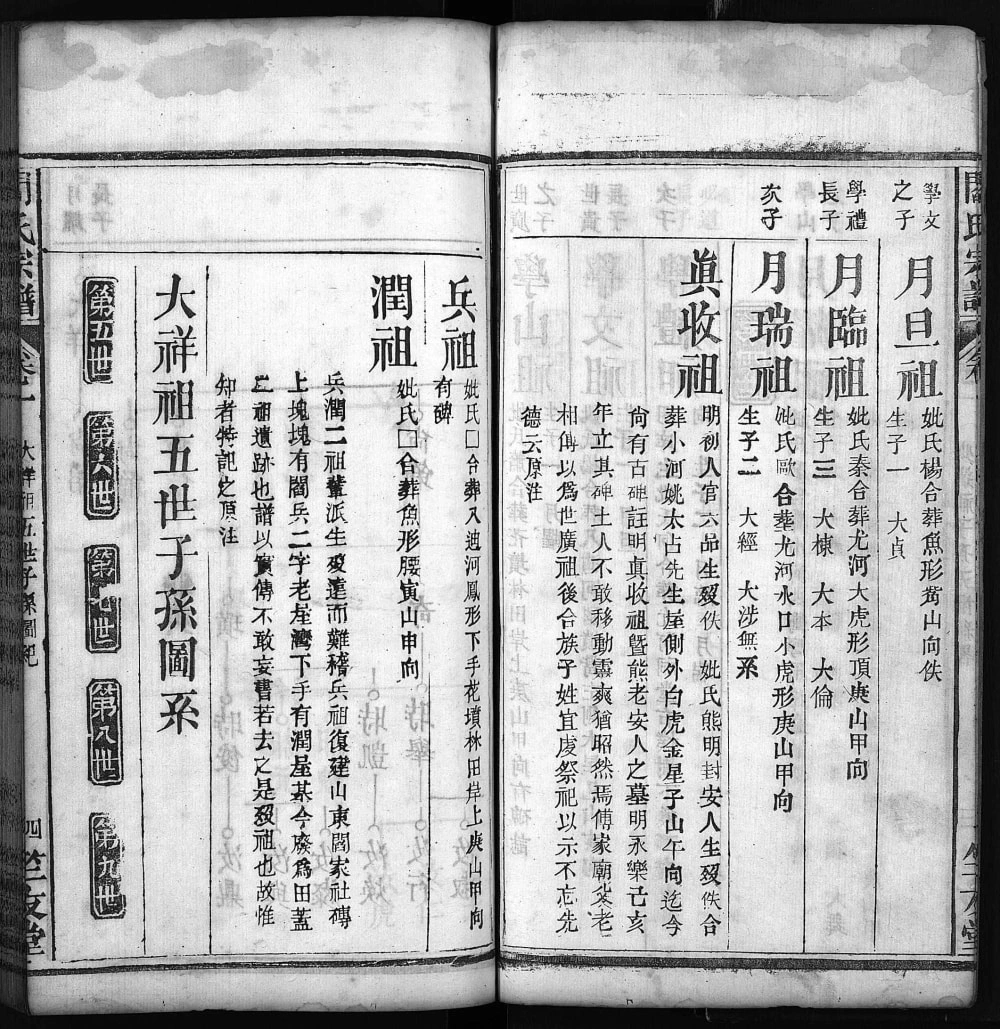 學文
之子
月旦祖
妣氏楊合葬魚形嵩山向佚
生子一 大貞
學禮
長子
月臨祖
妣氏秦合葬尤河大虎形頂庚山甲向
生子三 大棟 大本 大倫
次子
月瑞祖
妣氏歐合葬尤河水口小虎形庚山甲向
生子二 大經 大涉無系
眞收祖
明初人官六品生歿佚 妣氏熊明封安人生歿佚合
葬小河姚太占先生屋側外白虎金星子山午向迄今
尙有古碑註明眞收祖曁熊老安人之墓明永樂己亥
年立其碑土人不敢移動靈爽猶昭然焉傅家廟裴老
相傳以爲世廣祖後合族子姓宜虔祭祀以示不忘先
德云原注
兵祖
妣氏囗合葬入迪河鳳形下手花墳林田岸上庚山甲向
有碑
潤祖
妣氏囗合葬魚形腰寅山申向
兵潤二祖輩派生歿遠而難稽兵祖復建山東閻家社磚
上塊塊有閻兵二字老屋灣下手有潤屋某今廢爲田蓋
二祖遺跡也譜以實傳不敢妄書若去之是歿祖也故惟
知者特記之原注
大祥祖五世子孫圖系
第五世
第六世
第七世
第八世
第九世
閻氏宗譜
卷一
大祥祖五世子孫圖系
四
竺友堂